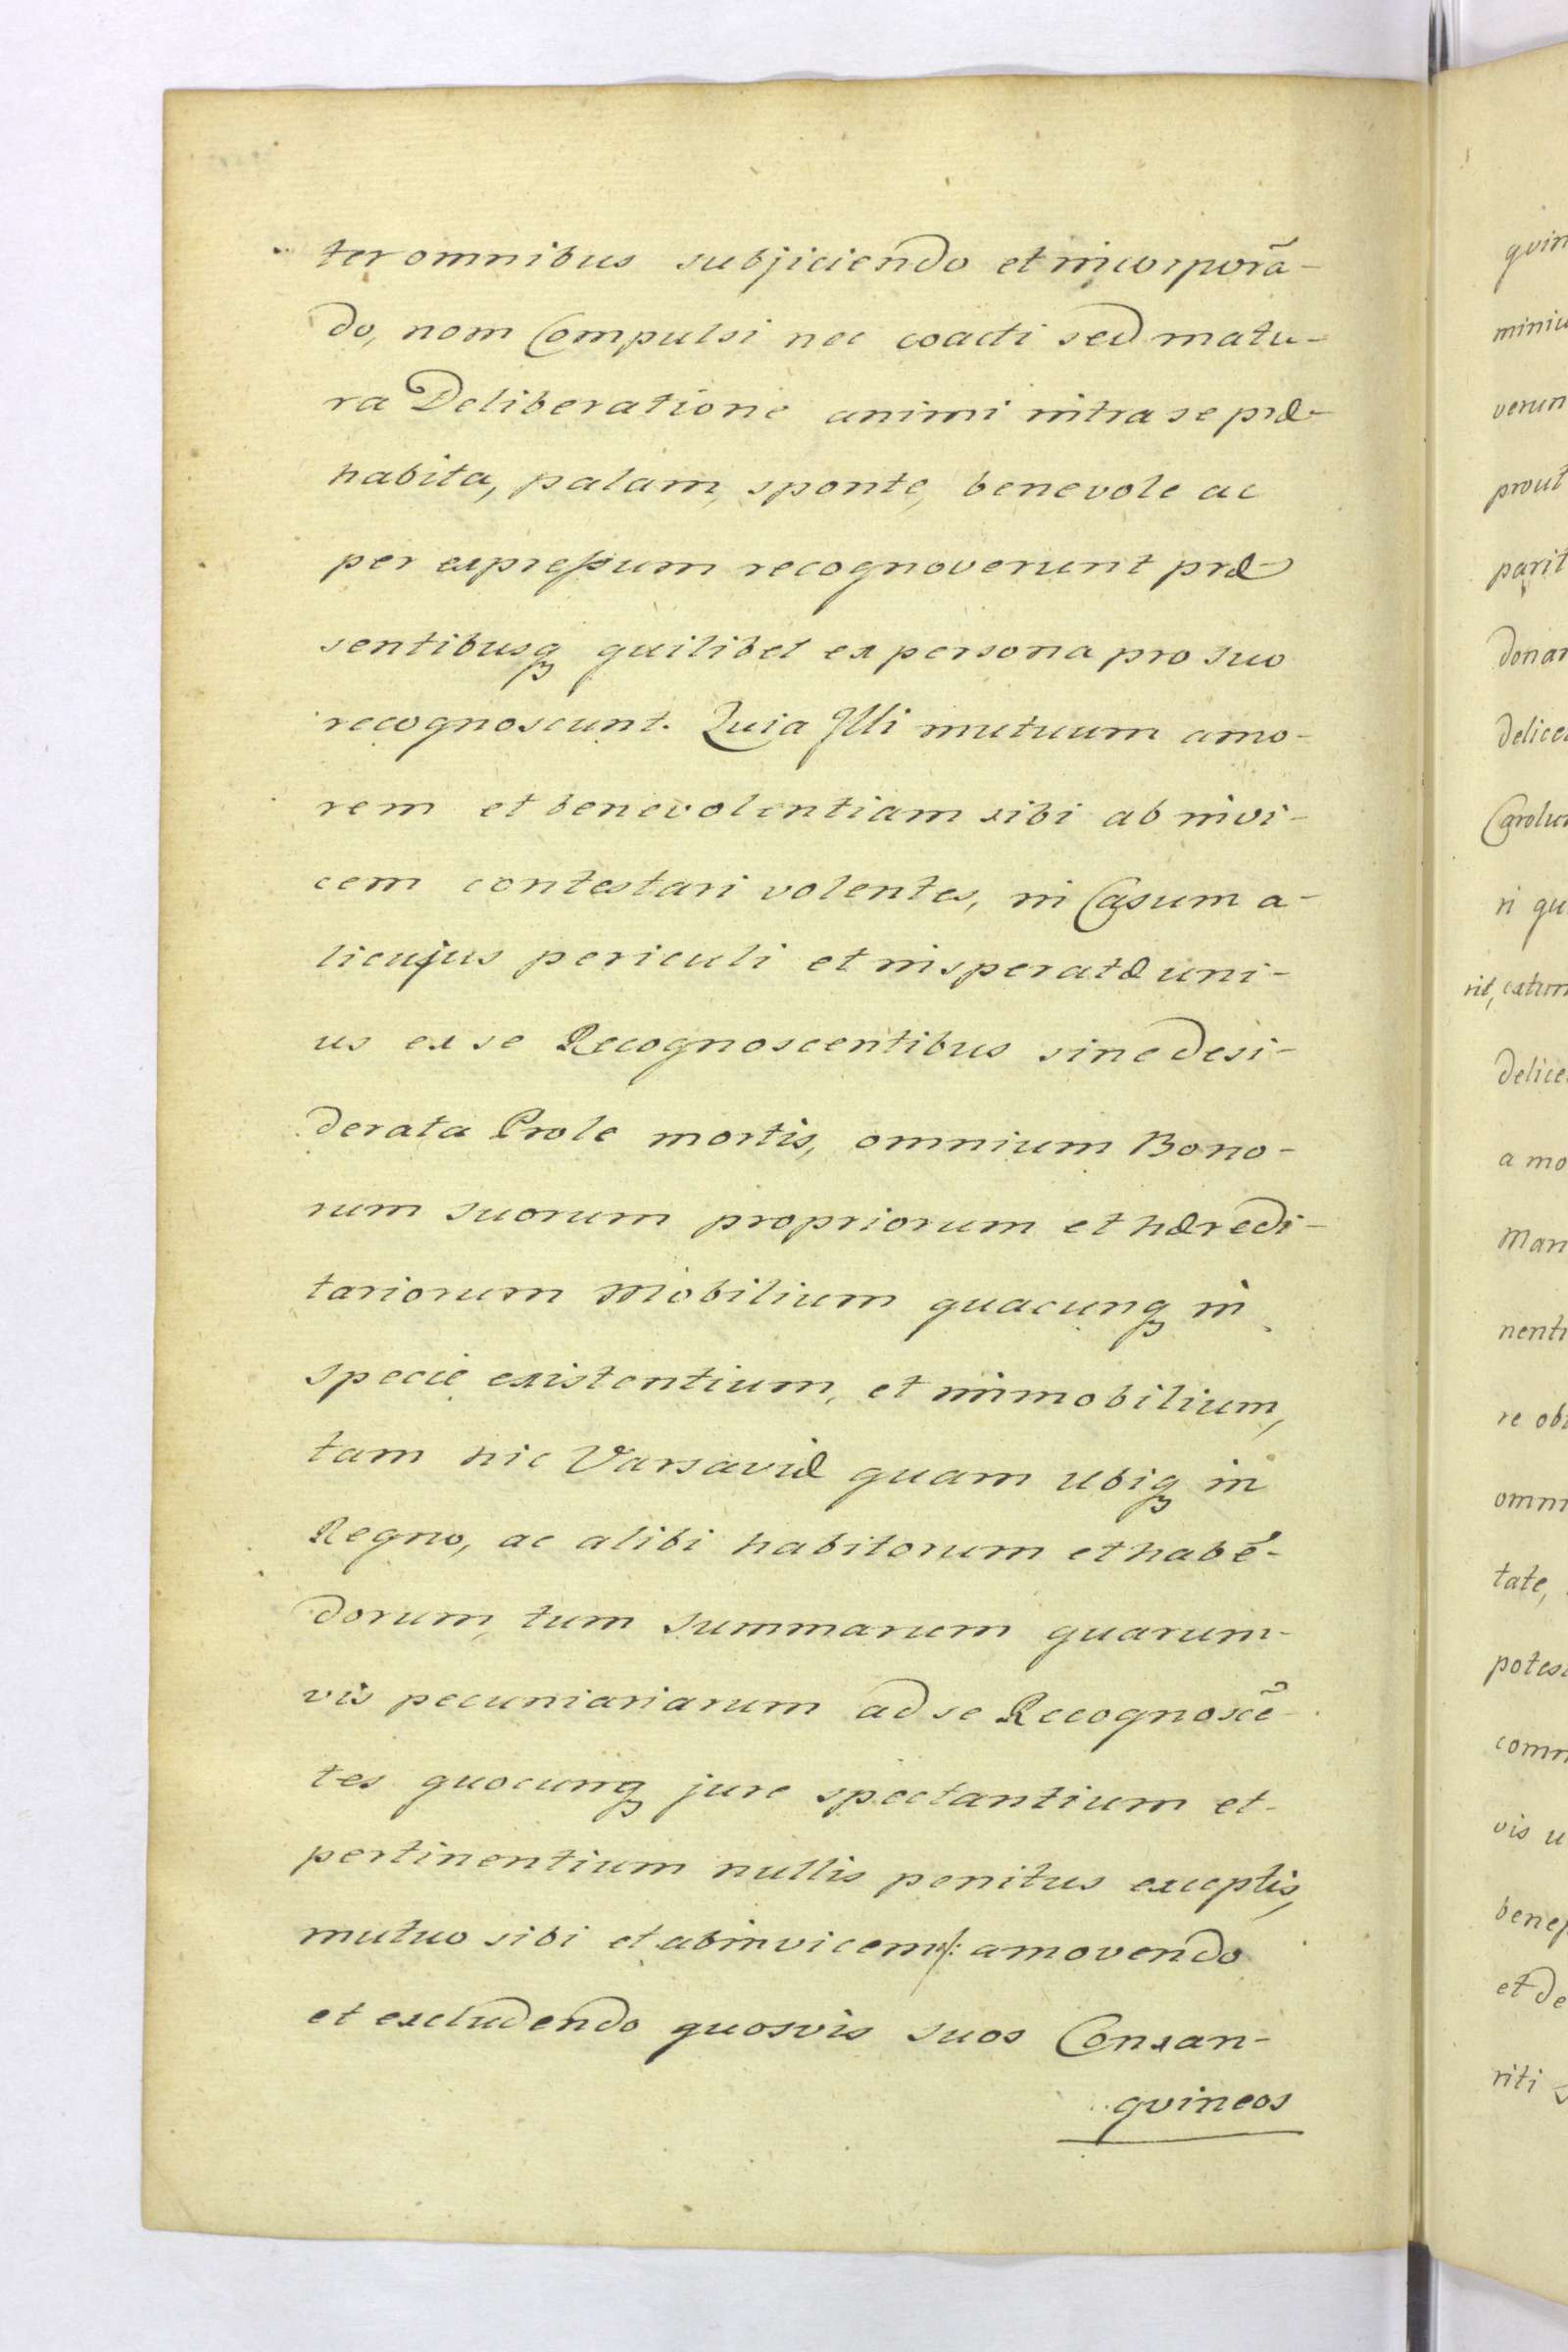 ter omnibus subjiciendo et incorporã-
do, nom Compulsi nec coacti sed matu-
ra Deliberatione animi intra se præ-
habita, palam, sponte, benevole ac
per expressum recognoverunt præ-
sentibusq₃ quilibet ex persona pro suo
recognoscunt. Quia Illi mutuum amo-
rem et benevolentiam sibi ab invi-
cem contestari volentes, in Casum a-
licujus periculi et insperatæ uni-
us ex se Recognoscentibus sine desi-
derata Prole mortis, omnium Bono-
rum suorum propriorum et hæredi-
tariorum Mobilium quacunq₃ in
specie existentium, et immobilium,
tam hic Varsaviæ quam ubiq₃ in
Regno, ac alibi habitorum et habẽ-
dorum, tum summarum quarum-
vis pecuniariarum ad se Recognoscẽ-
tes quocunq₃ jure spectantium et
pertinentium nullis penitus exceptis,
mutuo sibi et abinvicem /: amovendo
et excludendo quosvis suos Consan-
gvineos
gvin
miniu
verun
prout
parit
donar
delice
Carolu
ri qu
delice
a mo
Man
nenti
re ob
omni
tate,
potes
comm
vis u
bene
et de
riti